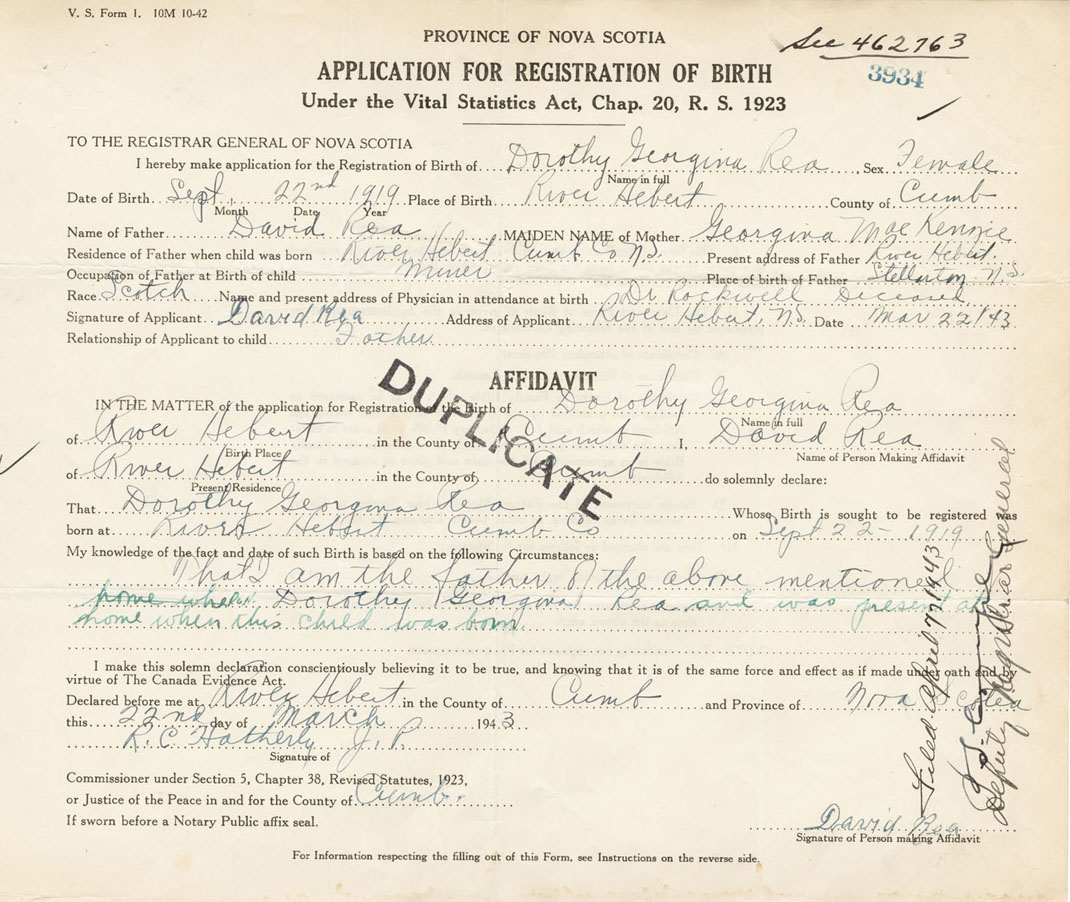 V. S. Form 1. 10M 10-42
See 462763
PROVINCE OF NOVA SCOTIA
3934
APPLICATION FOR REGISTRATION OF BIRTH
Under the Vital Statistics Act, Chap. 20, R. S. 1923
TO THE REGISTRAR GENERAL OF NOVA SCOTIA
I hereby make application for the Registration of Birth of Dorothy Georgina Rea Sex Female
Name in full
Date of Birth Sept 22nd 1919 Place of Birth River Hebert County of Cumb
Month Date Year
Name of Father David Rea MAIDEN NAME of Mother Georgina MacKenzie
Residence of Father when child was born River Hebert Cumb Co N.S. Present address of Father River Hebert
Occupation of Father at Birth of child Miner Place of birth of Father Stellarton, N.S.
Race Scotch Name and present address of Physician in attendance at birth Dr Rockwell Deceased
Signature of Applicant David Rea Address of Applicant River Hebert, N.S. Date Mar 22/43
Relationship of Applicant to child Father
DUPLICATE
AFFIDAVIT
IN THE MATTER of the application for Registration of the Birth of Dorothy Georgina Rea
Name in full
of River Hebert in the County of Cumb I, David Rea
Birth Place Name of Person Making Affidavit
of River Hebert in the County of Cumb do solemnly declare:
Present Residence
That Dorothy Georgina Rea Whose Birth is sought to be registered was
born at River Hebert Cumb Co on Sept 22-1919
My knowledge of the fact and date of such Birth is based on the following Circumstances:
That I am the father of the above mentioned
home when Dorothy Georgina Rea and was present at
home when this child was born.
I make this solemn declaration conscientiously believing it to be true, and knowing that it is of the same force and effect as if made under oath and by
virtue of The Canada Evidence Act.
Declared before me at River Hebert in the County of Cumb and Province of Nova Scotia
this 22nd day of March 1943
R. C. Hatherly J. P.
Signature of
Commissioner under Section 5, Chapter 38, Revised Statutes, 1923,
or Justice of the Peace in and for the County of Cumb.
If sworn before a Notary Public affix seal.
David Rea
Signature of Person making Affidavit
For Information respecting the filling out of this Form, see Instructions on the reverse side.
Filed April 7, 1943
Deputy Registrar General